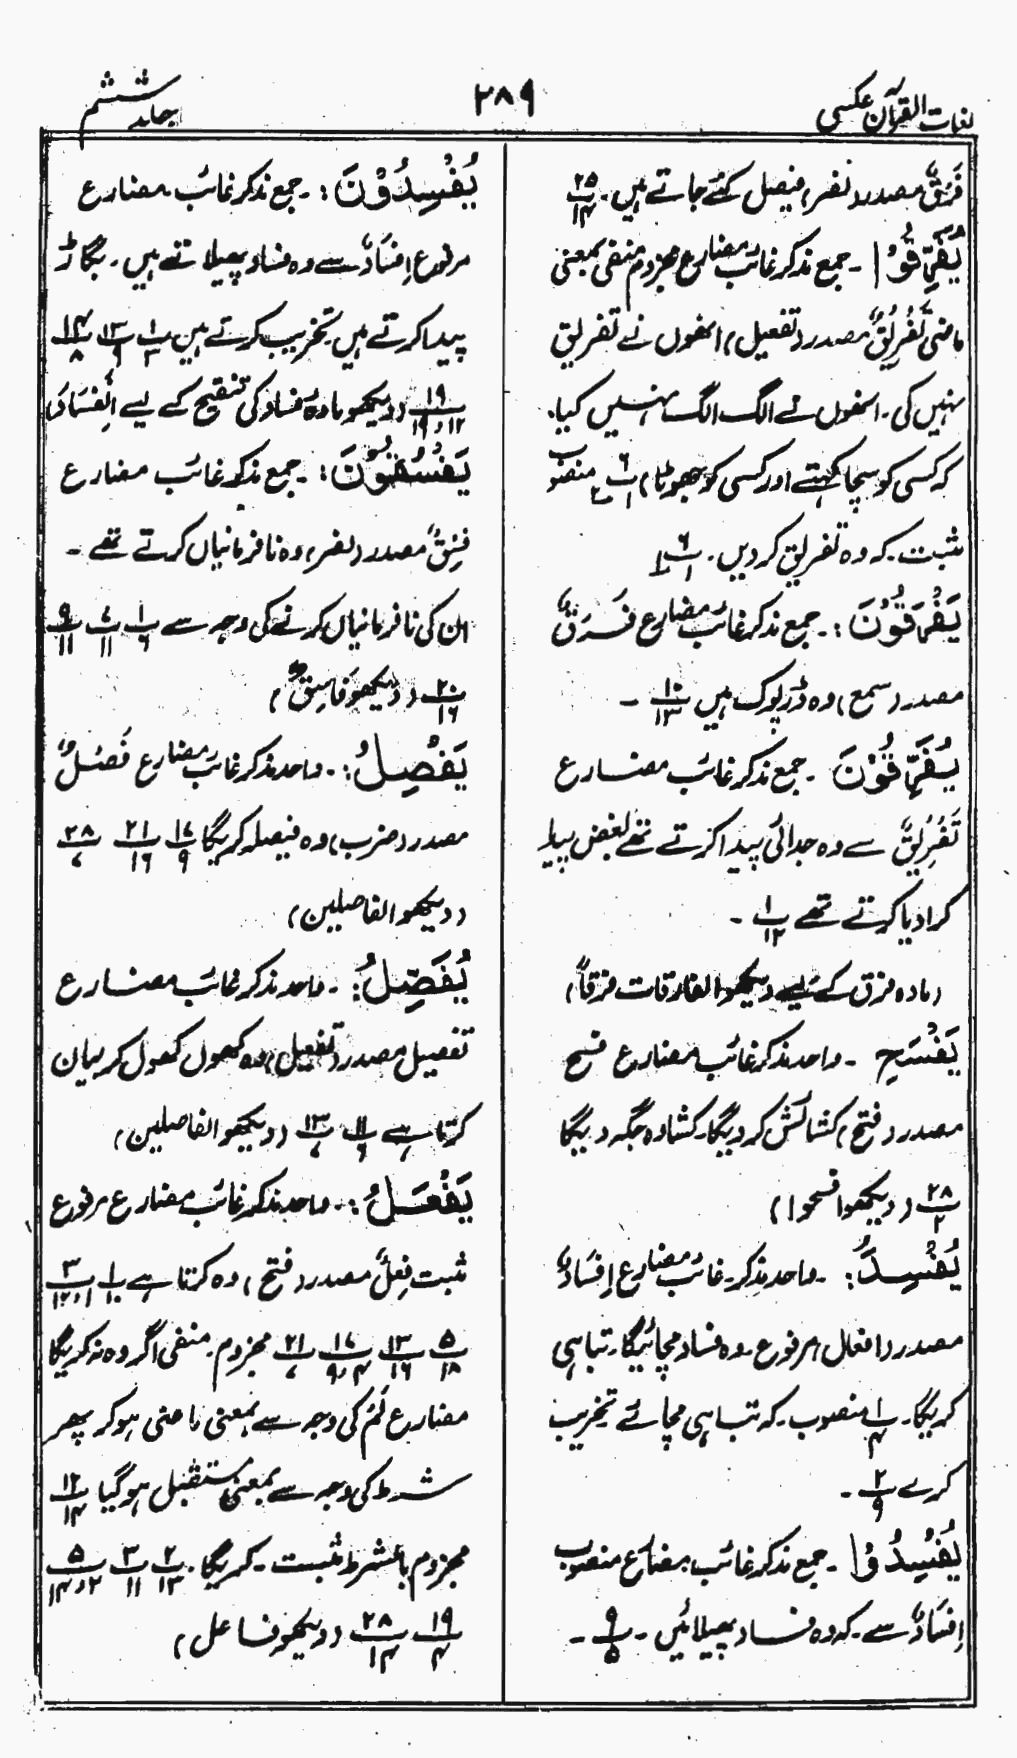 لغات القرآن عکسی
۲۸۹
جلد ششم
فَرْقٌ مصدر (نصر) فیصل کئے جاتے ہیں۔ ۲۵/۱۴
یُفَرِّقُوْا ۔ جمع مذکر غائب مضارع مجزوم منفی بمعنی
ماضی تَفْرِیْقٌ مصدر (تفعیل) انھوں نے تفریق
نہیں کی۔ انھوں نے الگ الگ نہیں کیا۔
کہ کسی کو سچا کہتے اور کسی کو جھوٹا) ۶/۱ منصوب
مثبت ۔ کہ وہ تفریق کر دیں۔ ۶/۱
یَفْرَقُوْنَ :۔ جمع مذکر غائب مضارع فَرَقٌ
مصدر (سمع) وہ ڈرپوک ہیں ۱۰/۱۳ ۔
یُفَرِّقُوْنَ ۔ جمع مذکر غائب مضارع
تَفْرِیْقٌ سے وہ جدائی پیدا کرتے تھے بغض پیدا
کرا دیا کرتے تھے ۱/۱۲ ۔
(مادہ فرق کے لیے دیکھو الفارقات فرقاً)
یَفْسَحِ ۔ واحد مذکر غائب مضارع فسح
مصدر (فتح) کشائش کر دیگا۔ کشادہ جگہ دیگا
۲۸/۲ (دیکھو افسحوا)
یُفْسِدُ :۔ واحد مذکر۔ غائب مضارع اِفْسَادٌ
مصدر (افعال) مرفوع ۔ وہ فساد مچائیگا۔ تباہی
کریگا۔ ۱/۴ منصوب ۔ کہ تباہی مچائے تخریب
کرے ۲/۹ ۔
یُفْسِدُوْا ۔ جمع مذکر غائب مضارع منصوب
اِفْسَادٌ سے ۔ کہ وہ فساد پھیلائیں ۔ ۹/۵ ۔
یُفْسِدُوْنَ :۔ جمع مذکر غائب مضارع
مرفوع اِفْسَادٌ سے وہ فساد پھیلاتے ہیں ۔ بگاڑ
پیدا کرتے ہیں تخریب کرتے ہیں ۱/۳ ۱۳/۹ ۱۴/۸
۱۹/۱۲،۱۹ (دیکھو مادہ فساد کی تنقیح کے لیے اَلْفَسَادَ)
یَفْسُقُوْنَ :۔ جمع مذکر غائب مضارع
فِسْقٌ مصدر (نصر) وہ نافرمانیاں کرتے تھے ۔
ان کی نافرمانیاں کرنے کی وجہ سے ۱/۶ ۷/۱۱ ۹/۱۱
۲۰/۱۶ (دیکھو فَاسِقٌ)
یَفْصِلُ :۔ واحد مذکر غائب مضارع فَصْلٌ
مصدر (ضرب) وہ فیصلہ کریگا ۱۷/۹ ۲۱/۱۶ ۲۸/۷
(دیکھو الفاصلین)
یُفَصِّلُ :۔ واحد مذکر غائب مضارع
تفصیل مصدر (تفعیل) وہ کھول کھول کر بیان
کرتا ہے ۱۱/۶ ۱۳/۷ (دیکھو الفاصلین)
یَفْعَلُ :۔ واحد مذکر غائب مضارع مرفوع
مثبت فِعْلٌ مصدر (فتح) وہ کرتا ہے ۱/۱۰ ۳/۱۲،۱
۵/۱۸ ۱۳/۱۶ ۱۷/۹،۴ ۲۱/۷ مجزوم۔ منفی اگر وہ نہ کریگا
مضارع لَمْ کی وجہ سے بمعنی ماضی ہو کر پھر
شرط کی وجہ سے بمعنی مستقبل ہو گیا ۱۲/۱۴
مجزوم بالشرط مثبت ۔ کریگا ۔ ۲/۱۳ ۳/۱۱ ۵/۱۴،۲
۱۹/۴ ۲۸/۱۴ (دیکھو فاعل)